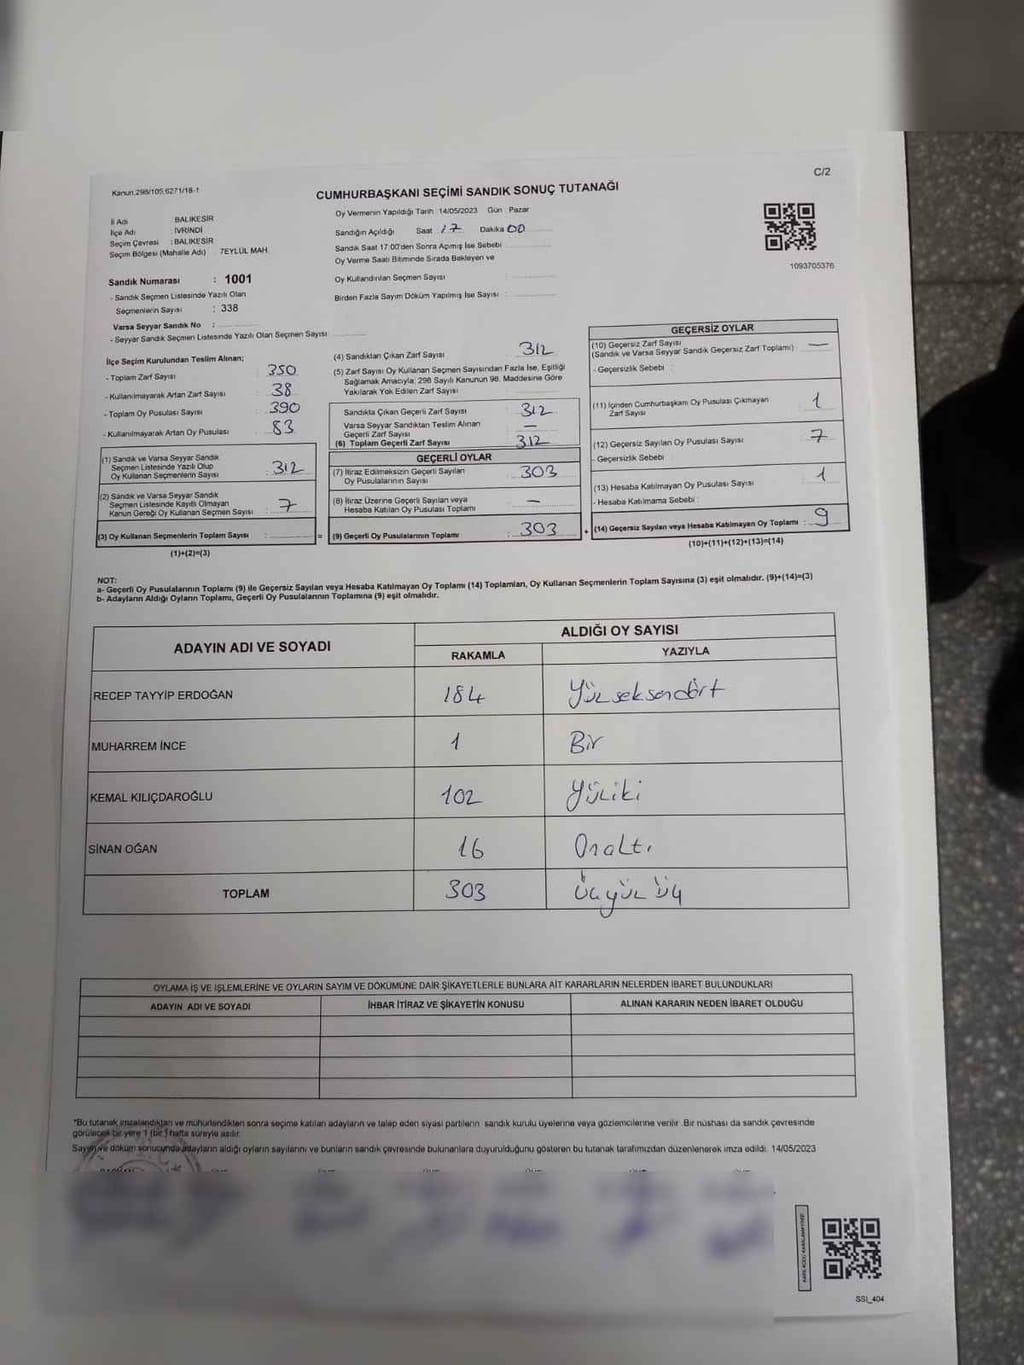 C/2
Kanun.298/105.6271/18-1
CUMHURBAŞKANI SEÇİMİ SANDIK SONUÇ TUTANAĞI
İl Adı : BALIKESİR
İlçe Adı : İVRİNDİ
Seçim Çevresi : BALIKESİR
Seçim Bölgesi (Mahalle Adı) 7EYLÜL MAH.
Oy Vermenin Yapıldığı Tarih :14/05/2023 Gün : Pazar
Sandığın Açıldığı Saat : 17 Dakika : 00
Sandık Saat 17:00'den Sonra Açımış İse Sebebi :
Oy Verme Saati Bitiminde Sırada Bekleyen ve
Oy Kullandırılan Seçmen Sayısı :
Birden Fazla Sayım Döküm Yapılmış İse Sayısı :
1093705376
Sandık Numarası : 1001
- Sandık Seçmen Listesinde Yazılı Olan
Seçmenlerin Sayısı : 338
Varsa Seyyar Sandık No :
- Seyyar Sandık Seçmen Listesinde Yazılı Olan Seçmen Sayısı :
İlçe Seçim Kurulundan Teslim Alınan;
- Toplam Zarf Sayısı : 350
- Kullanılmayarak Artan Zarf Sayısı : 38
- Toplam Oy Pusulası Sayısı : 390
- Kullanılmayarak Artan Oy Pusulası : 83
(1) Sandık ve Varsa Seyyar Sandık
Seçmen Listesinde Yazılı Olup
Oy Kullanan Seçmenlerin Sayısı : 312
(2) Sandık ve Varsa Seyyar Sandık
Seçmen Listesinde Kayıtlı Olmayan
Kanun Gereği Oy Kullanan Seçmen Sayısı : 7
(3) Oy Kullanan Seçmenlerin Toplam Sayısı : =
(1)+(2)=(3)
(4) Sandıktan Çıkan Zarf Sayısı : 312
(5) Zarf Sayısı Oy Kullanan Seçmen Sayısından Fazla İse, Eşitliği
Sağlamak Amacıyla; 298 Sayılı Kanunun 98. Maddesine Göre
Yakılarak Yok Edilen Zarf Sayısı :
Sandıkta Çıkan Geçerli Zarf Sayısı : 312
Varsa Seyyar Sandıktan Teslim Alınan
Geçerli Zarf Sayısı : —
(6) Toplam Geçerli Zarf Sayısı : 312
GEÇERLİ OYLAR
(7) İtiraz Edilmeksizin Geçerli Sayılan
Oy Pusulalarının Sayısı : 303
(8) İtiraz Üzerine Geçerli Sayılan veya
Hesaba Katılan Oy Pusulası Toplamı : —
(9) Geçerli Oy Pusulalarının Toplamı : 303 +
GEÇERSİZ OYLAR
(10) Geçersiz Zarf Sayısı : —
(Sandık ve Varsa Seyyar Sandık Geçersiz Zarf Toplamı)
- Geçersizlik Sebebi :
(11) İçinden Cumhurbaşkanı Oy Pusulası Çıkmayan
Zarf Sayısı : 1
(12) Geçersiz Sayılan Oy Pusulası Sayısı : 7
- Geçersizlik Sebebi :
(13) Hesaba Katılmayan Oy Pusulası Sayısı : 1
- Hesaba Katılmama Sebebi :
(14) Geçersiz Sayılan veya Hesaba Katılmayan Oy Toplamı : 9
(10)+(11)+(12)+(13)=(14)
NOT:
a- Geçerli Oy Pusulalarının Toplamı (9) ile Geçersiz Sayılan veya Hesaba Katılmayan Oy Toplamı (14) Toplamları, Oy Kullanan Seçmenlerin Toplam Sayısına (3) eşit olmalıdır. (9)+(14)=(3)
b- Adayların Aldığı Oyların Toplamı, Geçerli Oy Pusulalarının Toplamına (9) eşit olmalıdır.
ADAYIN ADI VE SOYADI ALDIĞI OY SAYISI
RAKAMLA YAZIYLA
RECEP TAYYİP ERDOĞAN 184 Yüzseksendört
MUHARREM İNCE 1 Bir
KEMAL KILIÇDAROĞLU 102 Yüziki
SİNAN OĞAN 16 Onaltı
TOPLAM 303 Üçyüz üç
OYLAMA İŞ VE İŞLEMLERİNE VE OYLARIN SAYIM VE DÖKÜMÜNE DAİR ŞİKAYETLERLE BUNLARA AİT KARARLARIN NELERDEN İBARET BULUNDUKLARI
ADAYIN ADI VE SOYADI İHBAR İTİRAZ VE ŞİKAYETİN KONUSU ALINAN KARARIN NEDEN İBARET OLDUĞU
*Bu tutanak imzalandıktan ve mühürlendikten sonra seçime katılan adayların ve talep eden siyasi partilerin sandık kurulu üyelerine veya gözlemcilerine verilir. Bir nüshası da sandık çevresinde
görülecek bir yere 1 (bir) hafta süreyle asılır.
Sayım ve döküm sonucunda adayların aldığı oyların sayılarını ve bunların sandık çevresinde bulunanlara duyurulduğunu gösteren bu tutanak tarafımızdan düzenlenerek imza edildi. 14/05/2023
SSI_404